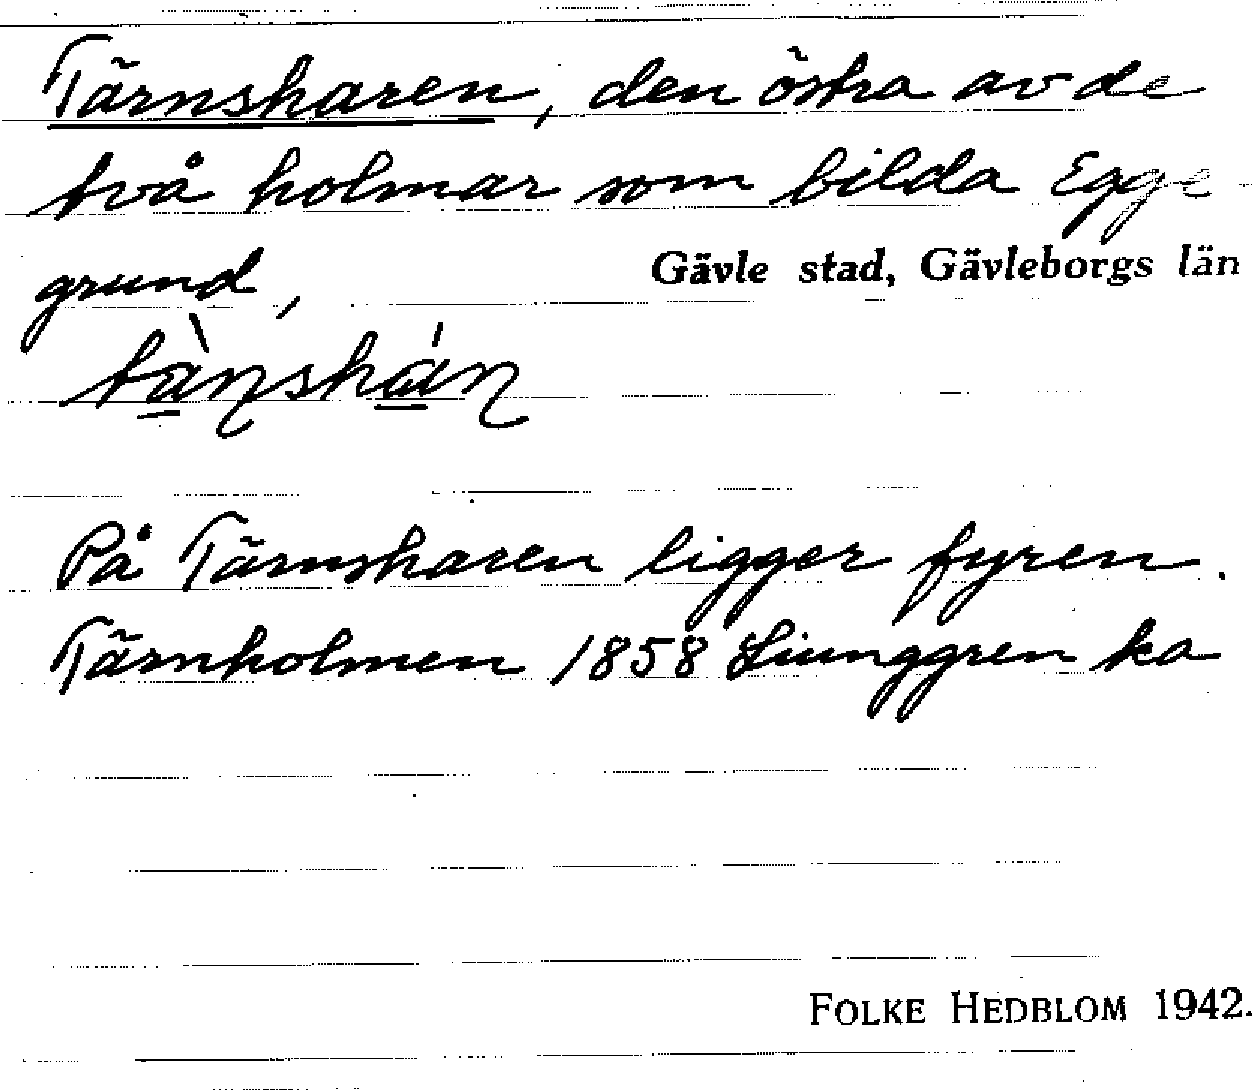 Tärnsharen, den östra av de
två holmar som bilda Egge-
grund,
Gävle stad, Gävleborgs län
På Tärnsharen ligger fyren.
Tärnholmen 1858 Ljunggren ka
FOLKE HEDBLOM 1942.